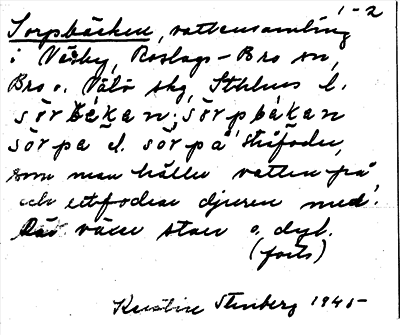 1-2
Sorpbäcken, vattensamling
i Väsby, Roslags-Bro sn,
Bro o. Vätö skg, Sthlms l.
sörbäkan; sörpbäkan
sörpa l. sörpa stråfoder,
som man häller vatten på
och utfodrar djuren med.
Där växer starr o. dyl.
(forts)
Kerstin Stenberg 1945